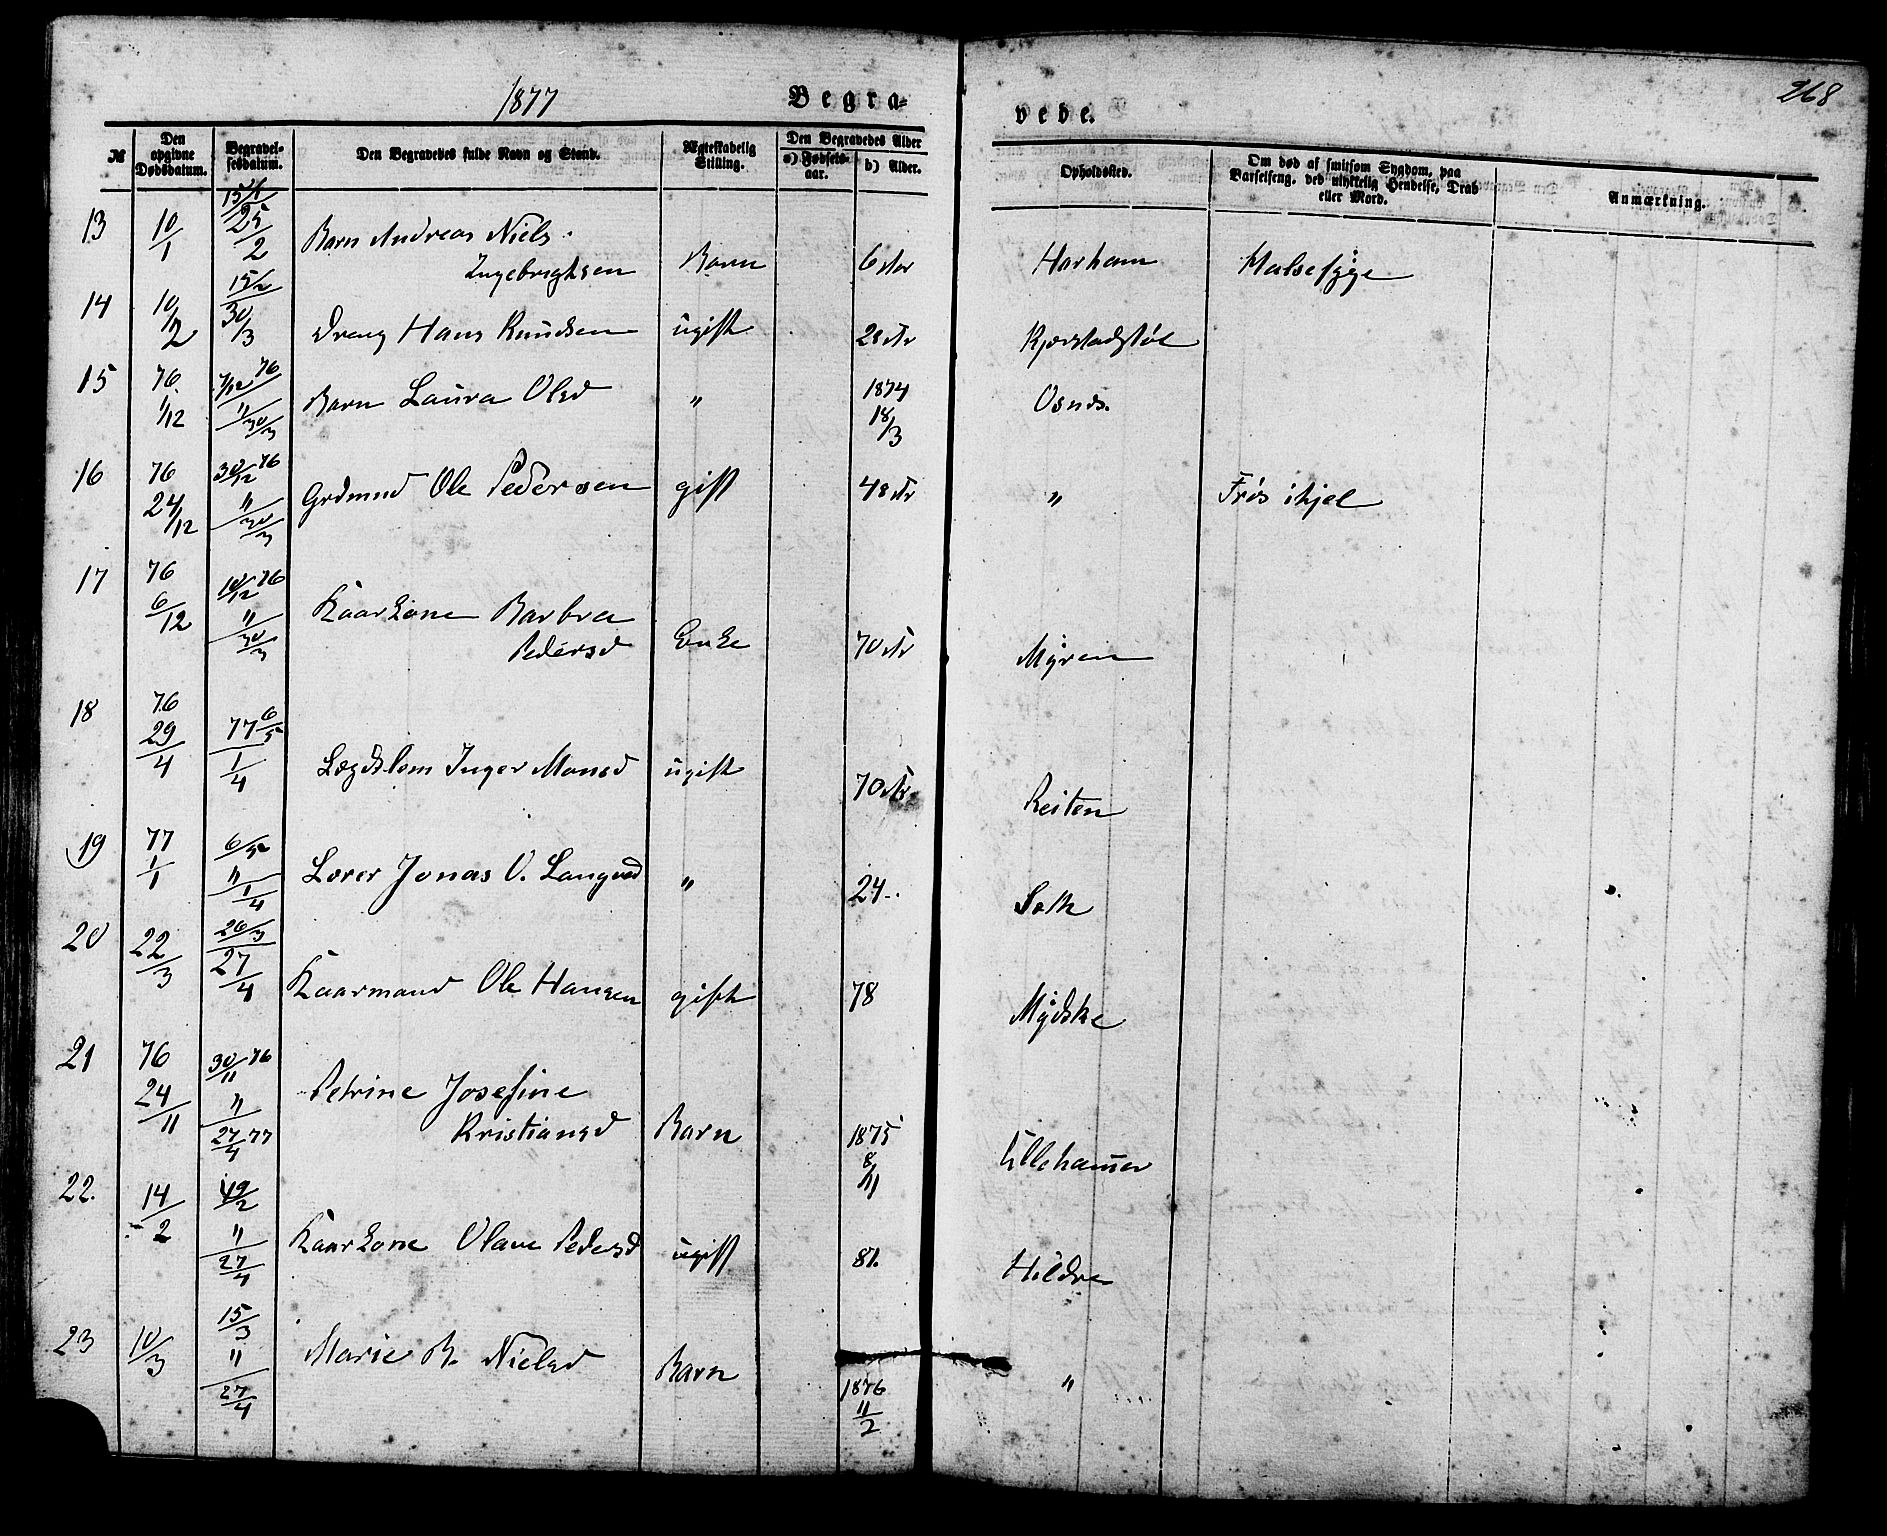 1877 Begra= vede. 268
№ Den opgivne Dødsdatum. Begravelsesdatum. Den Begravedes fulde Navn og Stand. Ægteskabelig Stilling. Den Begravedes Alder a) Fødselsaar. b) Alder. Opholdssted. Om død af smitsom Sygdom, paa Barselseng, ved ulykkelig Hendelse, Drab eller Mord. Anmærkning.
13 10/1 15/1 25/2 Barn Andreas Niels
Ingebrigtsen Barn 6 Aar Harham Halsesyge
14 10/2 15/2 30/3 Dreng Hans Knudsen ugift 28 Ar Kjærstadstøl
15 76 1/12 7/12 76 " 30/3 Barn Laura Olsd " 1874 18/3 Osnes.
16 76 24/12 30/12 76 " 30/3 Grdmnd Ole Pedersen gift 48 Ar " Frøs ihjel
17 76 6/12 10/12 76 " 30/3 Kaarkone Barbra
Pedersd Enke 70 Ar Myren
18 76 29/4 77 6/5 1/4 Lægdslem Inger Monsd ugift 70 Ar Reiten
19 77 1/1 6/5 " 1/4 Lærer Jonas O. Langved " 24 Sæth
20 22/3 26/3 27/4 Kaarmand Ole Hansen gift 78 Mydske
21 76 24/11 30/11 76 " 27/4 77 Petrine Josefine
Kristiansd Barn 1875 8/11 Lillehamer
22. 14/2 19/2 " 27/4 Kaarkone Olave Pedersd ugift 81. Hildre
23 10/3 15/3 " 27/4 Marie B. Nielsd Barn 1876 11/2 "